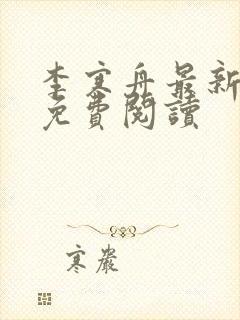 李寒舟最新
免費閱讀
寒巖